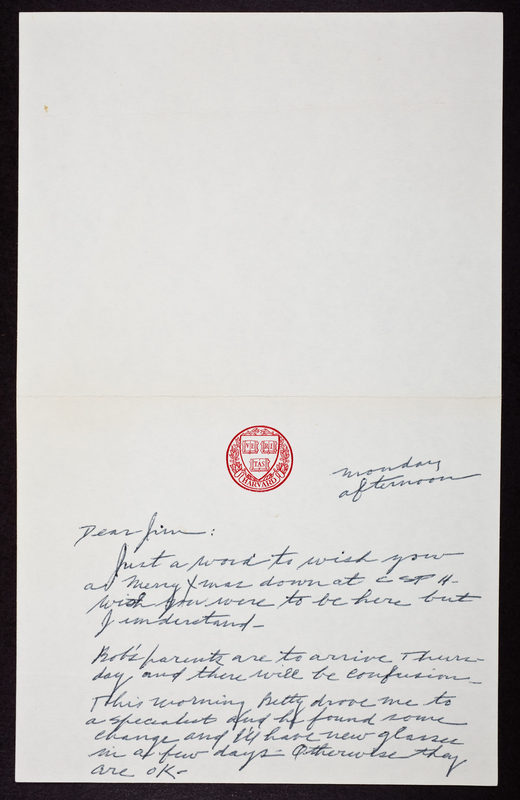 VE RI
TAS
HARVARD
Monday
afternoon
Dear Jim:
Just a word to wish you
a Merry Xmas down at C & H -
Wish you were to be here but
I understand -
Bob's parents are to arrive Thurs-
day and there will be confusion -
This morning Betty drove me to
a specialist and he found some
change and I'll have new glasses
in a few days - Otherwise they
are OK -